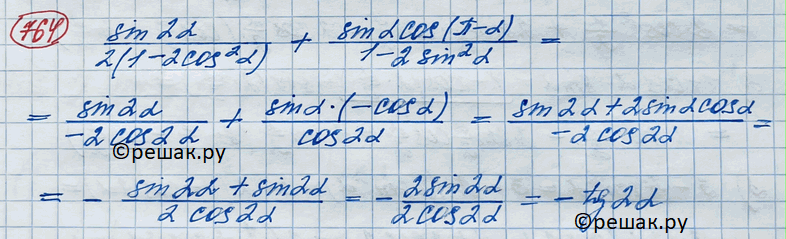 764 sin 2α / 2(1-2cos²α) + sinα cos(π-α) / 1-2 sin²α =
= sin 2α / -2 cos 2α + sinα·(-cosα) / cos 2α = sin 2α + 2 sinα cosα / -2 cos 2α =
©решак.ру
= - sin 2α + sin 2α / 2 cos 2α = - 2 sin 2α / 2 cos 2α = - tg 2α
©решак.ру